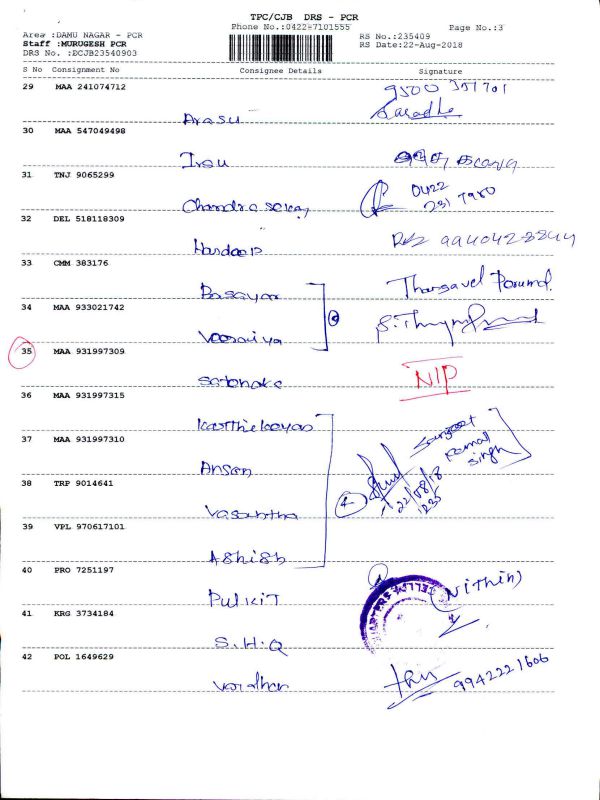 TPC/CJB DRS - PCR
Phone No.:0422-7101555 Page No.:3
Area :DAMU NAGAR - PCR RS No.:235409
Staff :MURUGESH PCR RS Date:22-Aug-2018
DRS No. :ECJB23540903
S No Consignment No Consignee Details Signature
29 MAA 241074712
Arasu
30 MAA 547049498
Irsu
31 TNJ 9065299 0422
Chandra sekar 231 7980
32 DEL 518118309
Hardeep 9940428844
33 CMM 383176
Thangavel Perumal
34 MAA 933021742
Veeraiya
35 MAA 931997309
NIP
36 MAA 931997315
Karthekeyan
37 MAA 931997310 Kamal
Ansan Singh
38 TRP 9014641 22/08/18
Vasantha 1235
39 VPL 970617101
Ashish
40 PRO 7251197
Pulkit (Nithin)
41 KRG 3734184
S.H.Q
42 POL 1649629
Vardhan 9942221606